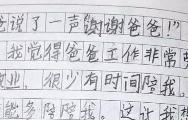 说了一声谢谢爸爸!”
我觉得爸爸工作非常
业，很少有时间陪我。
能多陪陪我。这让我